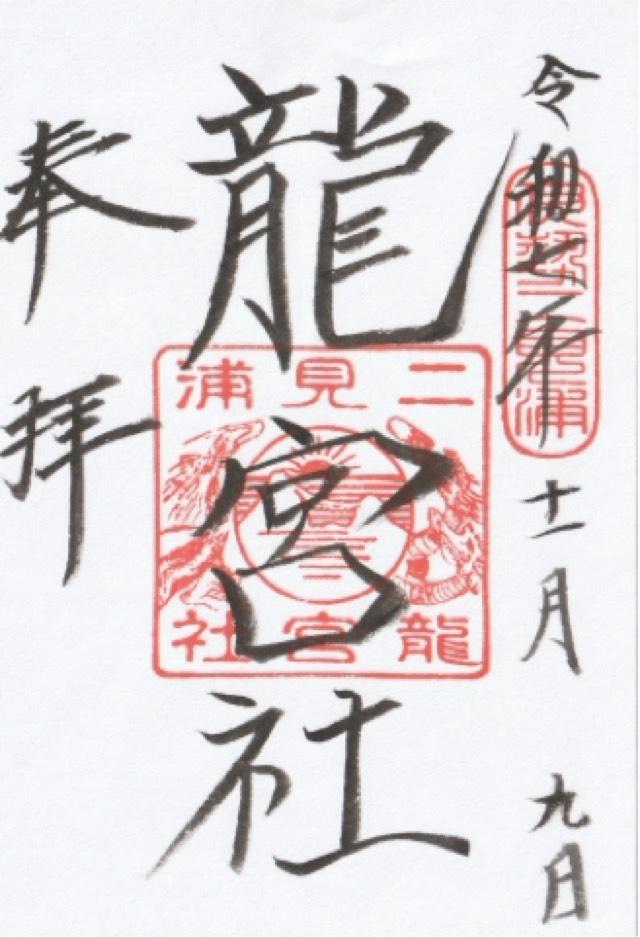 令和七年十一月九日
伊勢二見浦
龍宮社
二見浦
龍宮社
奉拝